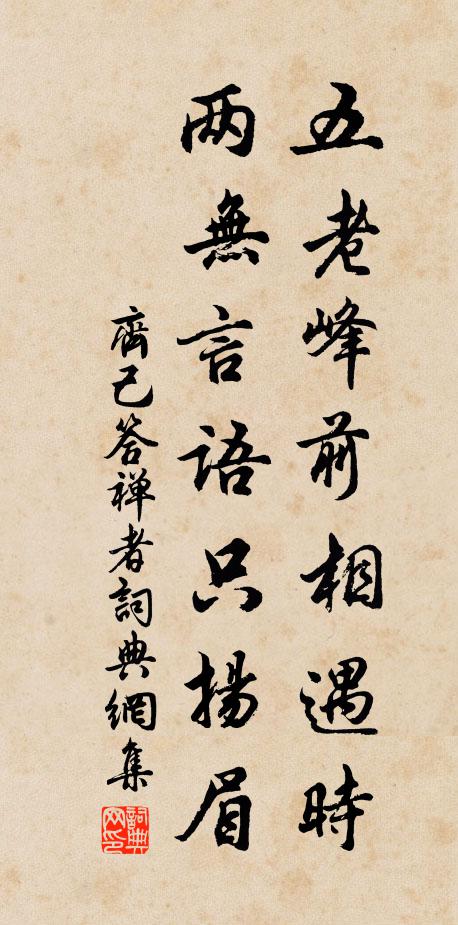 五老峰前相遇時
两無言語只揚眉
齊己答禅者詞典網集
詞典网印